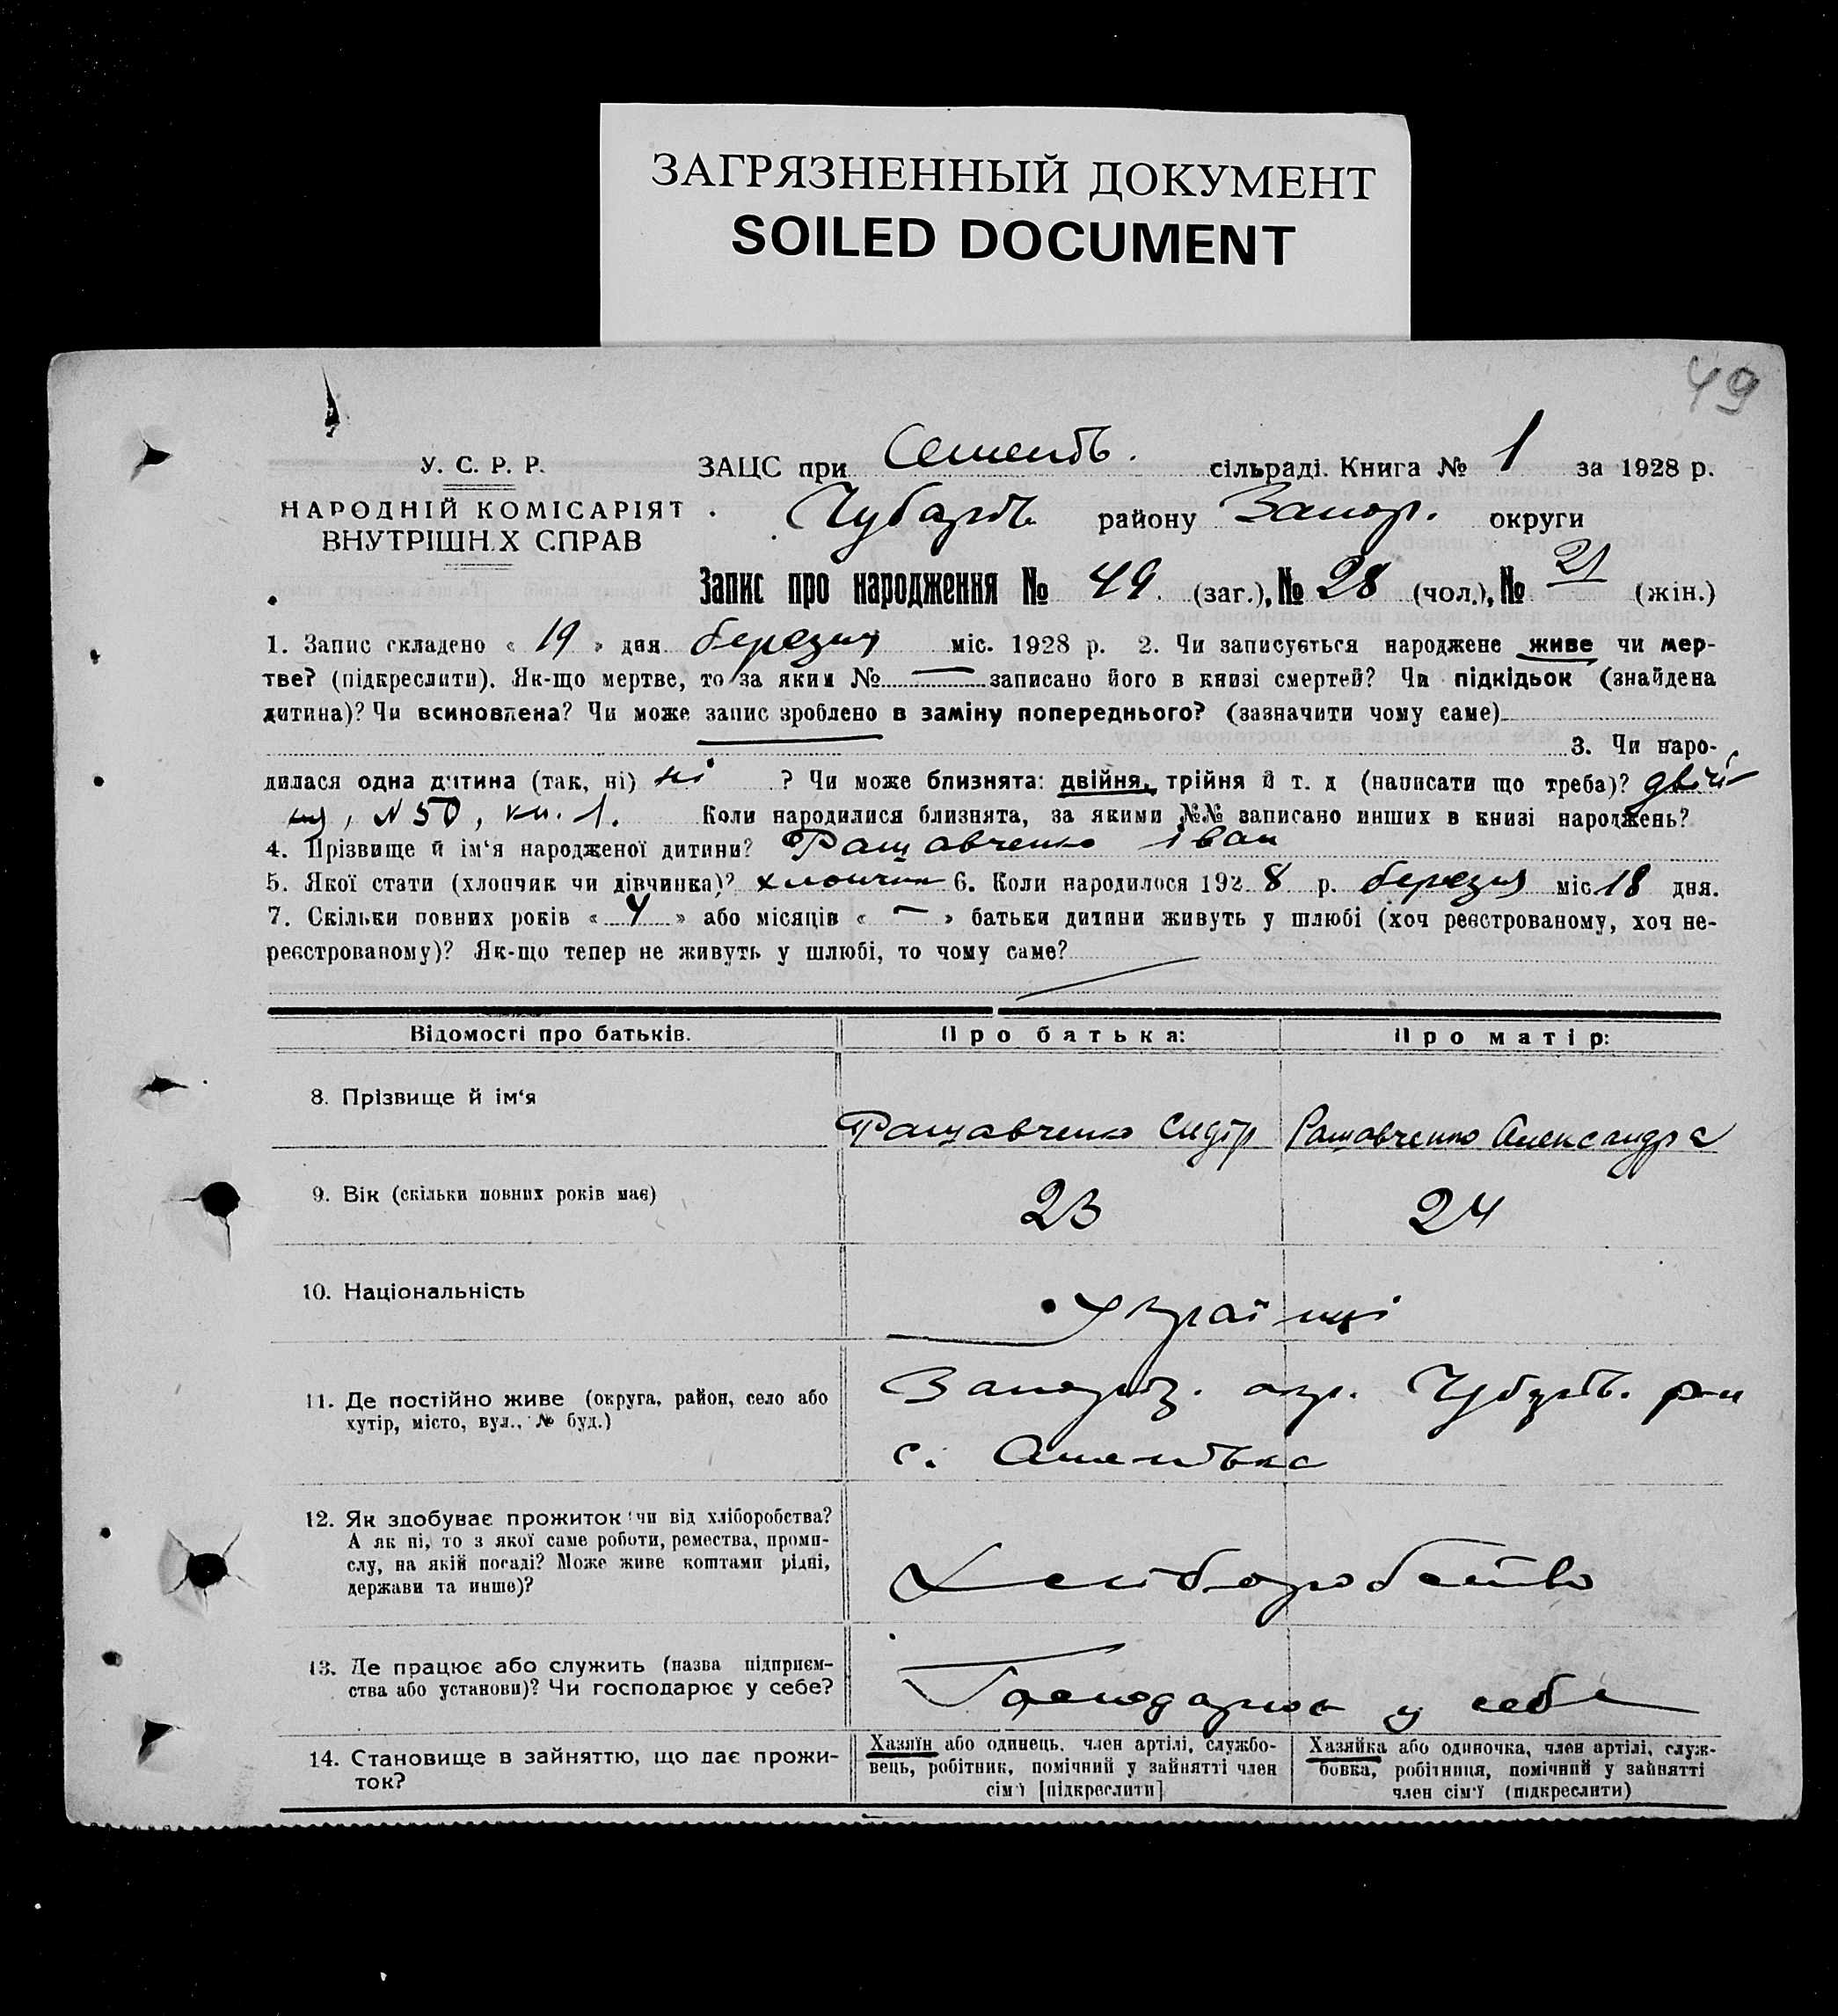 ЗАГРЯЗНЕННЫЙ ДОКУМЕНТ
SOILED DOCUMENT
49
У. С. Р. Р.
НАРОДНІЙ КОМІСАРІЯТ
ВНУТРІШН.Х СПРАВ
ЗАЦС при сільраді. Книга № 1 за 1928 р.
Чубарів району Запор. округи
Запис про народження № 49 (заг.), № 28 (чол.), № 21 (жін.)
1. Запис складено « 19 » дня березня міс. 1928 р. 2. Чи записується народжене живе чи мер-
тве? (підкреслити). Як-що мертве, то за яким № — записано його в книзі смертей? Чи підкідьок (знайдена
дитина)? Чи всиновлена? Чи може запис зроблено в заміну попереднього? (зазначити чому саме)
3. Чи наро-
дилася одна дитина (так, ні) ні ? Чи може близнята: двійня, трійня й т. д (написати що треба)? двій-
ня, N 50, кн. 1. Коли народилися близнята, за якими №№ записано инших в книзі народжень?
4. Прізвище й ім‘я народженої дитини? Ращавченко Іван
5. Якої стати (хлопчик чи дівчинка)? хлопчик 6. Коли народилося 192 8 р. березня міс. 18 дня.
7. Скільки повних років « 4 » або місяців « — » батьки дитини живуть у шлюбі (хоч реєстрованому, хоч не-
реєстрованому)? Як-що тепер не живуть у шлюбі, то чому саме?
Відомості про батьків. Про батька: Про матір:
8. Прізвище й ім‘я
Ращавченко Сидір Ращавченко Александра
9. Вік (скільки повних років має)
23 24
10. Національність
Українці
11. Де постійно живе (округа, район, село або
хутір, місто, вул., № буд.)
Запоріз. окр. Чубарів. р-н
с.
12. Як здобуває прожиток чи від хліборобства?
А як ні, то з якої саме роботи, ремества, проми-
слу, на якій посаді? Може живе коштами рідні,
держави та инше)?
Хліборобство
13. Де працює або служить (назва підприєм-
ства або установи)? Чи господарює у себе?
Господарює у себе
14. Становище в зайняттю, що дає прожи-
ток?
Хазяїн або одинець, член артілі, службо-
вець, робітник, помічний у зайнятті член
сім'ї [підкреслити]
Хазяйка або одиночка, член артілі, служ-
бовка, робітниця, помічний у зайнятті
член сім'ї (підкреслити)